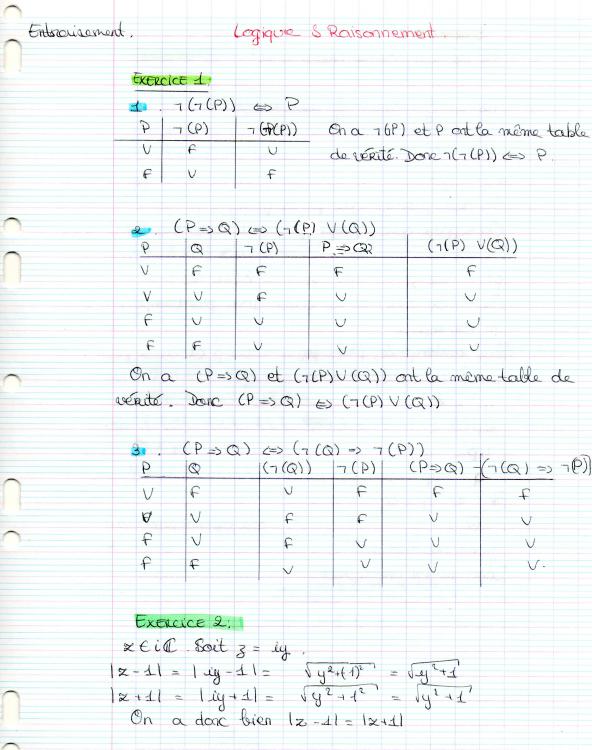 Entraînement. Logique & Raisonnement.
EXERCICE 1:
1. ¬(¬(P)) ⇔ P
P ¬(P) ¬(¬(P)) On a ¬(P) et P ont la même table
V F V de vérité. Donc ¬(¬(P)) ⇔ P.
F V F
2. (P ⇒ Q) ⇔ (¬(P) V(Q))
P Q ¬(P) P ⇒ Q (¬(P) V(Q))
V F F F F
V V F V V
F V V V V
F F V V V
On a (P ⇒ Q) et (¬(P) V(Q)) ont la même table de
vérité. Donc (P ⇒ Q) ⇔ (¬(P) V(Q))
3. (P ⇒ Q) ⇔ (¬(Q) ⇒ ¬(P))
P Q (¬(Q)) ¬(P) (P ⇒ Q) (¬(Q) ⇒ ¬(P))
V F V F F F
V V F F V V
F V F V V V
F F V V V V.
EXERCICE 2:
z ∈ iℂ. Soit z = iy.
|z - 1| = |iy - 1| = √y²+(-1)² = √y²+1
|z + 1| = |iy + 1| = √y² + 1² = √y² + 1
On a donc bien |z - 1| = |z + 1|